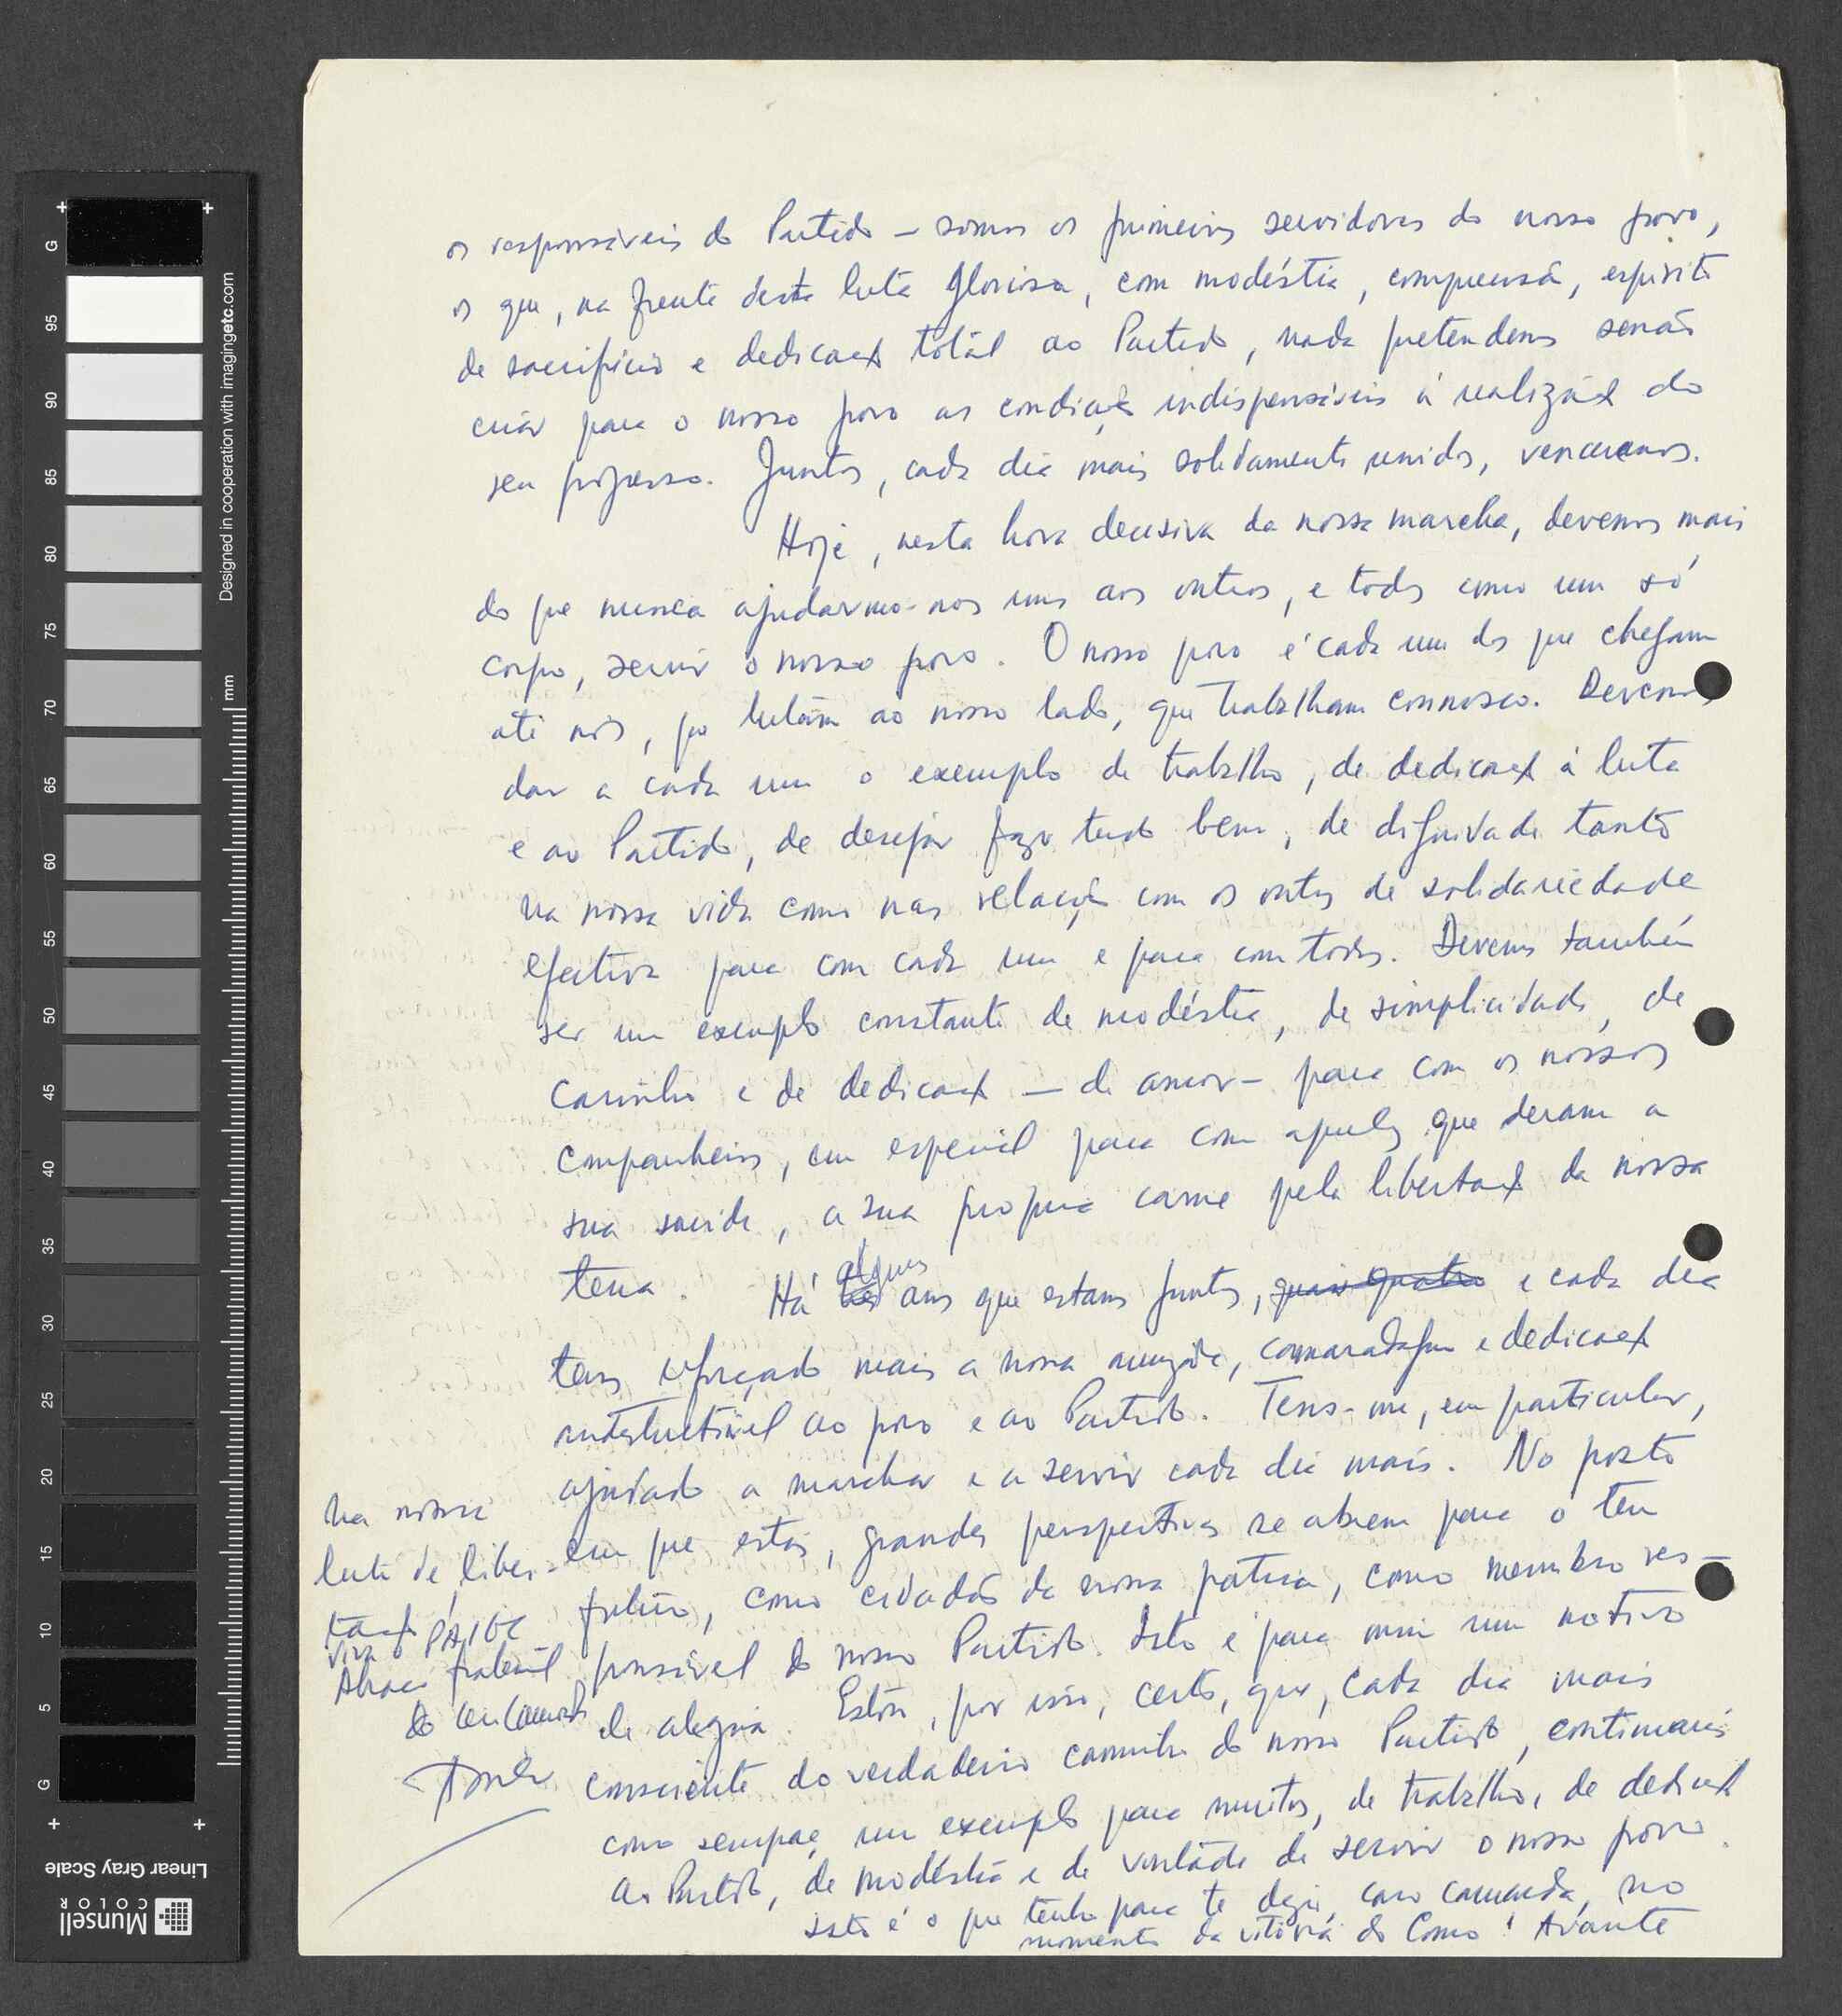 os responsáveis do Partido — somos os primeiros servidores do nosso povo,
os que, na frente desta luta gloriosa, com modéstia, compreensão, espírito
de sacrifício e dedicação total ao Partido, nada pretendemos senão
criar para o nosso povo as condições indispensáveis à realização do
seu progresso. Juntos, cada dia mais solidamente unidos, venceremos.
Hoje, nesta hora decisiva da nossa marcha, devemos mais
do que nunca ajudarmo-nos uns aos outros, e todos como um só
corpo, servir o nosso povo. O nosso povo é cada um dos que chegam
até nós, que lutam ao nosso lado, que trabalham connosco. Devemos
dar a cada um o exemplo de trabalho, de dedicação à luta
e ao Partido, de desejar fazer tudo bem, de dignidade tanto
na nossa vida como nas relações com os outros de solidariedade
efectiva para com cada um e para com todos. Devemos também
ser um exemplo constante de modéstia, de simplicidade, de
carinho e de dedicação — de amor — para com os nossos
companheiros, em especial para com aqueles que deram a
sua saúde, a sua própria carne pela libertação da nossa
terra. Há alguns anos que estamos juntos, quase quatro e cada dia
tens reforçado mais a nossa amizade, camaradagem e dedicação
indestructível ao povo e ao Partido. Tens-me, em particular,
ajudado a marchar e a servir cada dia mais. No posto
em que estás, grandes perspectivas se abrem para o teu
futuro, como cidadão da nossa pátria, como membro res-
ponsável do nosso Partido. Isto é para mim um motivo
de alegria. Estou, por isso, certo, que, cada dia mais
consciente do verdadeiro caminho do nosso Partido, continuarás
como sempre, um exemplo para muitos, de trabalho, de dedicação
ao Partido, de modéstia e de vontade de servir o nosso povo.
Isto é o que tenho para te dizer, caro camarada, no
momento da vitória do Como! Avante
na nossa
luta de liber-
tação
Viva o PAIGC
Abraço fraternal
do teu camarada
G
95
90
85
80
75
70
65
60
55
50
45
40
35
30
25
20
15
10
5
G
mm
Designed in cooperation with imagingetc.com
Linear Gray Scale
Munsell
COLOR